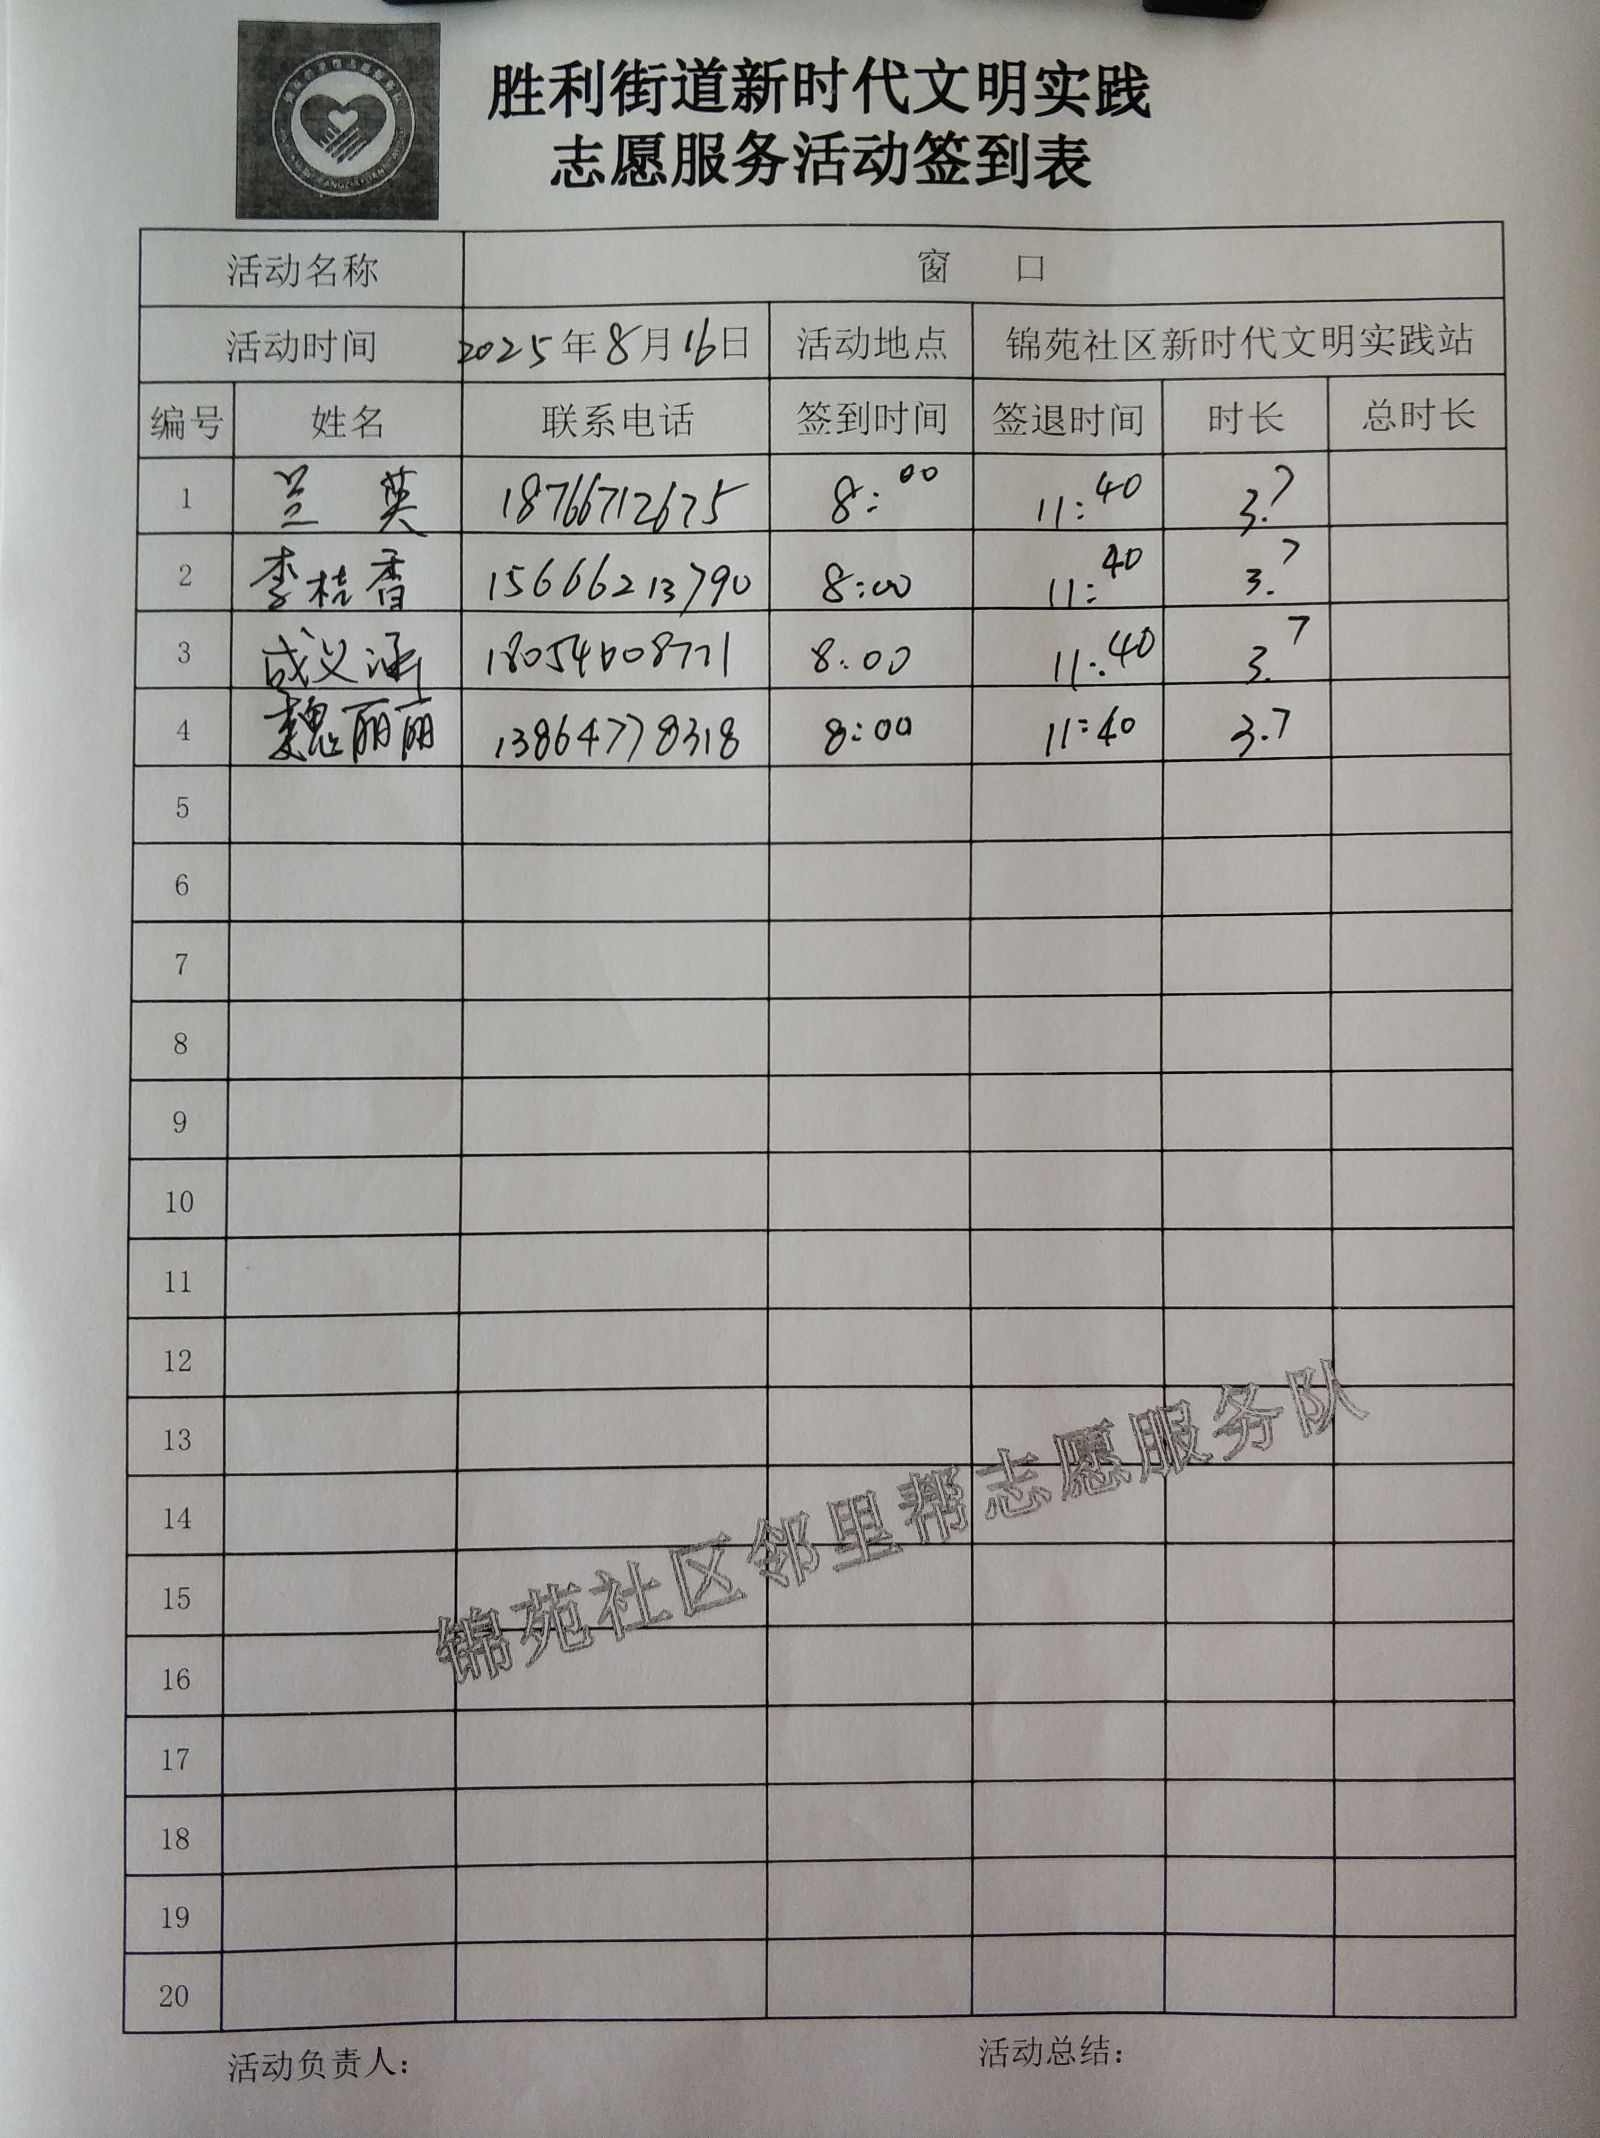 胜利街道新时代文明实践
志愿服务活动签到表
活动名称 窗 口
活动时间 2025年8月16日 活动地点 锦苑社区新时代文明实践站
编号 姓名 联系电话 签到时间 签退时间 时长 总时长
1 兰英 18766712675 8:00 11:40 3.7
2 李桂香 15666213790 8:00 11:40 3.7
3 成义涵 18054608771 8:00 11:40 3.7
4 魏丽丽 13864778318 8:00 11:40 3.7
5
6
7
8
9
10
11
12
13
14
15
16
17
18
19
20
锦苑社区邻里帮志愿服务队
活动负责人： 活动总结：